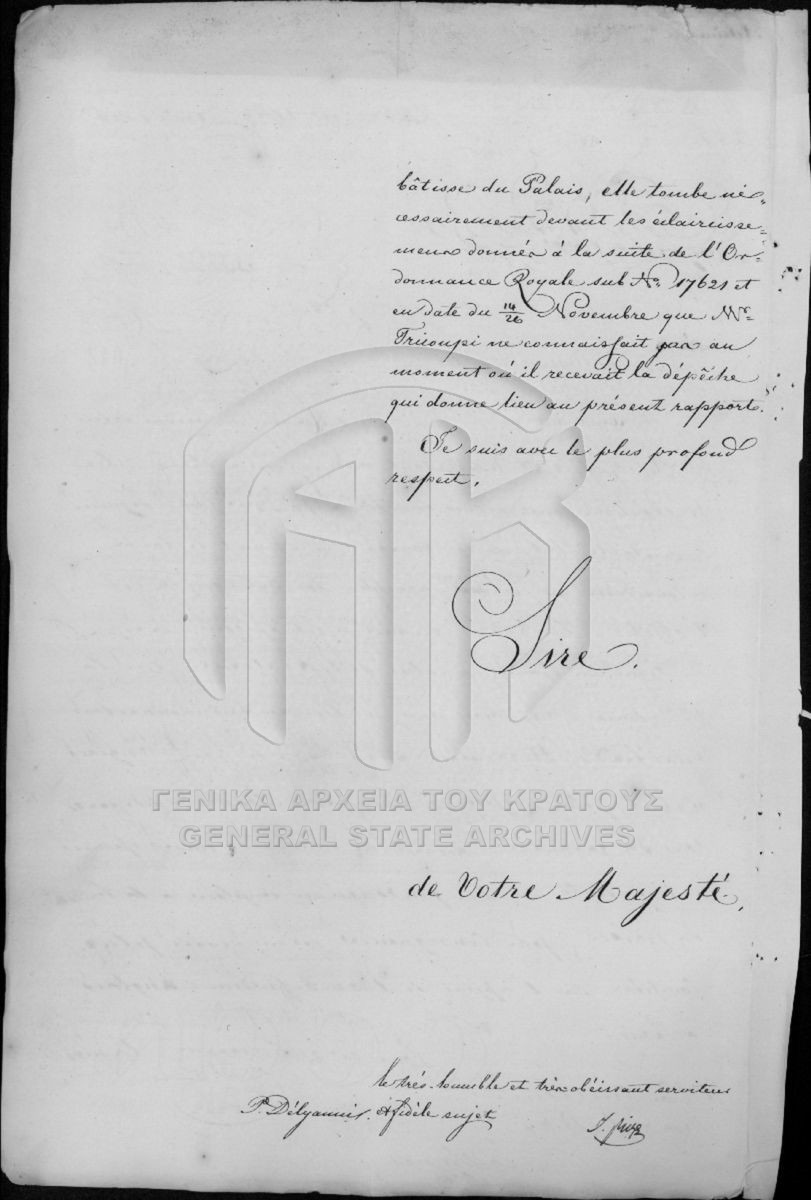 bâtisse du Palais, elle tombe né-
cessairement devant les éclaircisse-
mens donnés à la suite de l'Or-
donnance Royale sub No. 17621 et
en date du 14/26 Novembre que Mr.
Tricoupi ne connaissait pas au
moment où il recevait la dépêche
qui donne lieu au présent rapport.
Je suis avec le plus profond
respect,
Sire.
ΓΕΝΙΚΑ ΑΡΧΕΙΑ ΤΟΥ ΚΡΑΤΟΥΣ
GENERAL STATE ARCHIVES
de Votre Majesté,
le très-humble et très obéissant serviteur
P. Délyannis. & fidèle sujet